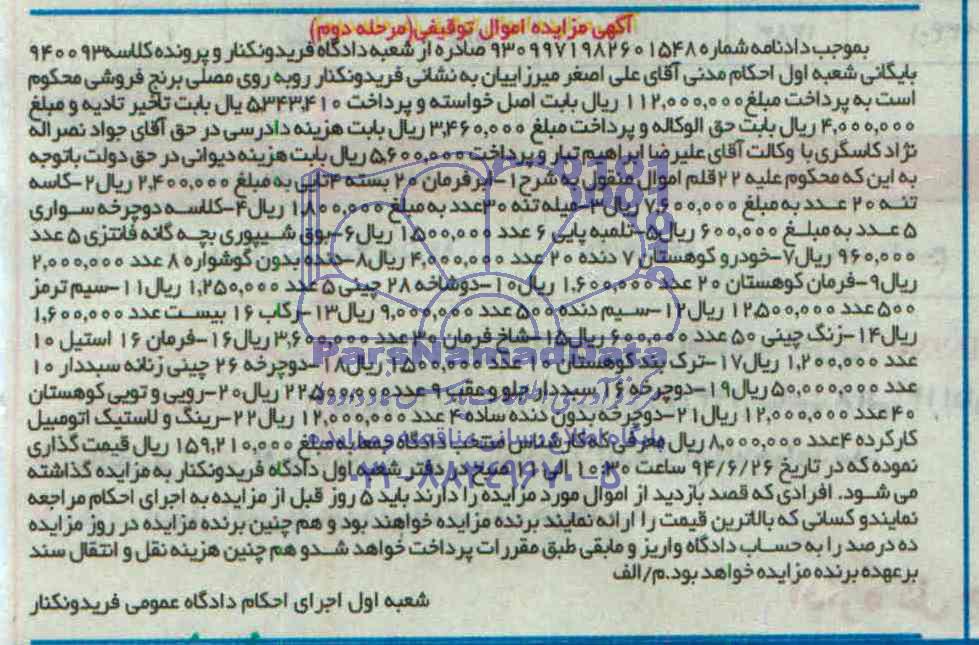 آگهی مزایده اموال توقیفی(مرحله دوم)
بموجب دادنامه شماره ۹۳۰۹۹۷۱۹۸۲۶۰۱۵۴۸ صادره از شعبه دادگاه فریدونکنار و پرونده کلاسه ۹۴۰۰۹۳
بایگانی شعبه اول احکام مدنی آقای علی اصغر میرزاییان به نشانی فریدونکنار روبه روی مصلی برنج فروشی محکوم
است به پرداخت مبلغ ۱۱۲,۰۰۰,۰۰۰ ریال بابت اصل خواسته و پرداخت ۵,۳۴۳,۴۱۰ یال بابت تأخیر تادیه و مبلغ
۴,۰۰۰,۰۰۰ ریال بابت حق الوکاله و پرداخت مبلغ ۳,۴۶۰,۰۰۰ ریال بابت هزینه دادرسی در حق آقای جواد نصراله
نژاد کاسگری با وکالت آقای علیرضا ابراهیم تبار و پرداخت ۵,۶۰۰,۰۰۰ ریال بابت هزینه دیوانی در حق دولت باتوجه
به این که محکوم علیه ۲۲ قلم اموال منقول به شرح ۱-ابرفرمان ۲۰ بسته ۴تایی به مبلغ ۲,۴۰۰,۰۰۰ ریال ۲-کاسه
تنه ۲۰ عدد به مبلغ ۷,۶۰۰,۰۰۰ ریال ۳-میله تنه ۳۰عدد به مبلغ ۱,۸۰۰,۰۰۰ ریال ۴-کلاسه دوچرخه سواری
۵ عدد به مبلغ ۶۰۰,۰۰۰ ریال ۵-تلمبه پایی ۶ عدد ۱,۵۰۰,۰۰۰ ریال ۶-بوق شیپوری بچه گانه فانتزی ۵ عدد
۹۶۰,۰۰۰ ریال ۷-خودرو کوهستان ۷ دنده ۲۰ عدد ۴,۰۰۰,۰۰۰ ریال ۸-دنده بدون گوشواره ۸ عدد ۲,۰۰۰,۰۰۰
ریال ۹-فرمان کوهستان ۲۰ عدد ۱,۶۰۰,۰۰۰ ریال ۱۰-دوشاخه ۲۸ چینی ۵ عدد ۱,۲۵۰,۰۰۰ ریال ۱۱-سیم ترمز
۵۰۰ عدد ۱۲,۵۰۰,۰۰۰ ریال ۱۲-سیم دنده ۵۰۰ عدد ۹,۰۰۰,۰۰۰ ریال ۱۳-رکاب ۱۶ بیست عدد ۱,۶۰۰,۰۰۰
ریال ۱۴-زنگ چینی ۵۰ عدد ۶۰۰,۰۰۰ ریال ۱۵-شاخ فرمان ۳۰ عدد ۳,۶۰۰,۰۰۰ ریال ۱۶-فرمان ۱۶ استیل ۱۰
عدد ۱,۲۰۰,۰۰۰ ریال ۱۷-ترک بند کوهستان ۱۰ عدد ۱,۵۰۰,۰۰۰ ریال ۱۸-دوچرخه ۲۶ چینی زنانه سبددار ۱۰
عدد ۵۰,۰۰۰,۰۰۰ ریال ۱۹-دوچرخه ۱۶ سبددار جلو و عقب ۹ عدد ۲۲,۵۰۰,۰۰۰ ریال ۲۰-رویی و تویی کوهستان
۴۰ عدد ۱۲,۰۰۰,۰۰۰ ریال ۲۱-دوچرخه بدون دنده ساده ۴ عدد ۱۲,۰۰۰,۰۰۰ ریال ۲۲-رینگ و لاستیک اتومبیل
کارکرده ۴عدد ۸,۰۰۰,۰۰۰ ریال معرفی که کارشناس منتخب دادگاه جمعا به مبلغ ۱۵۹,۲۱۰,۰۰۰ ریال قیمت گذاری
نموده که در تاریخ ۹۴/۶/۲۶ ساعت ۱۰:۳۰ الی ۱۱ صبح در دفتر شعبه اول دادگاه فریدونکنار به مزایده گذاشته
می شود. افرادی که قصد بازدید از اموال مورد مزایده را دارند باید ۵ روز قبل از مزایده به اجرای احکام مراجعه
نمایندو کسانی که بالاترین قیمت را ارائه نمایند برنده مزایده خواهند بود و هم چنین برنده مزایده در روز مزایده
ده درصد را به حساب دادگاه واریز و مابقی طبق مقررات پرداخت خواهد شدو هم چنین هزینه نقل و انتقال سند
برعهده برنده مزایده خواهد بود.م/الف
شعبه اول اجرای احکام دادگاه عمومی فریدونکنار
ParsNamadData
پایگاه اطلاع رسانی مناقصه و مزایده
۰۲۱-۸۸۳۴۹۶۷۰-۵